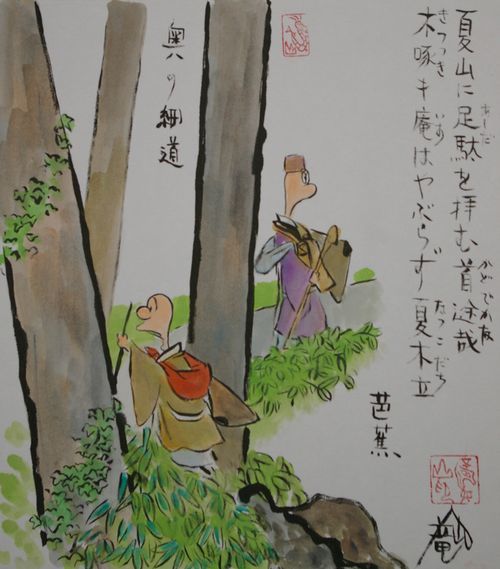 夏山に足駄を拝む首途哉
あしだ
かどでかな
木啄も庵はやぶらず夏木立
きつつき
いほ
なつこだち
芭蕉
奥の細道